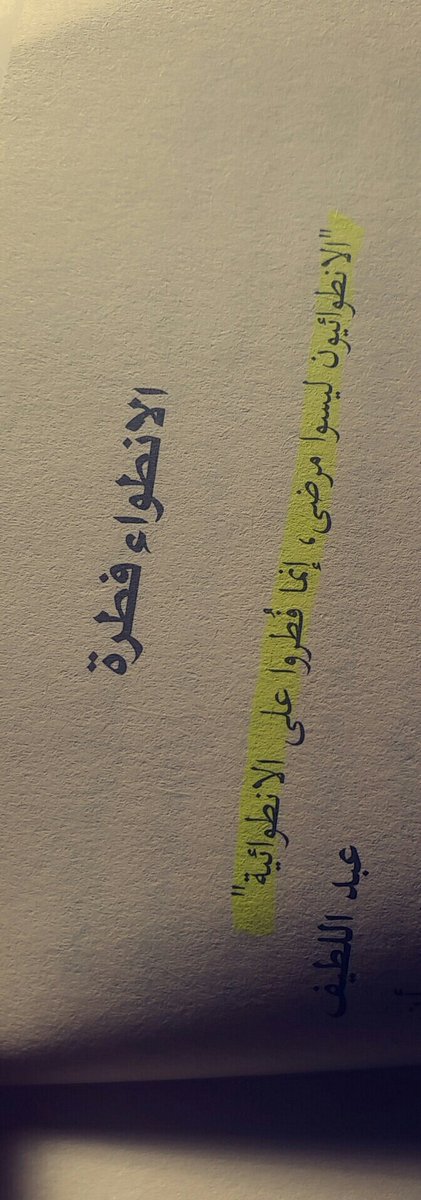 الانطواء فطرة
"الانطوائيون ليسوا مرضى، إنما فُطروا على الانطوائية"
عبد اللطيف